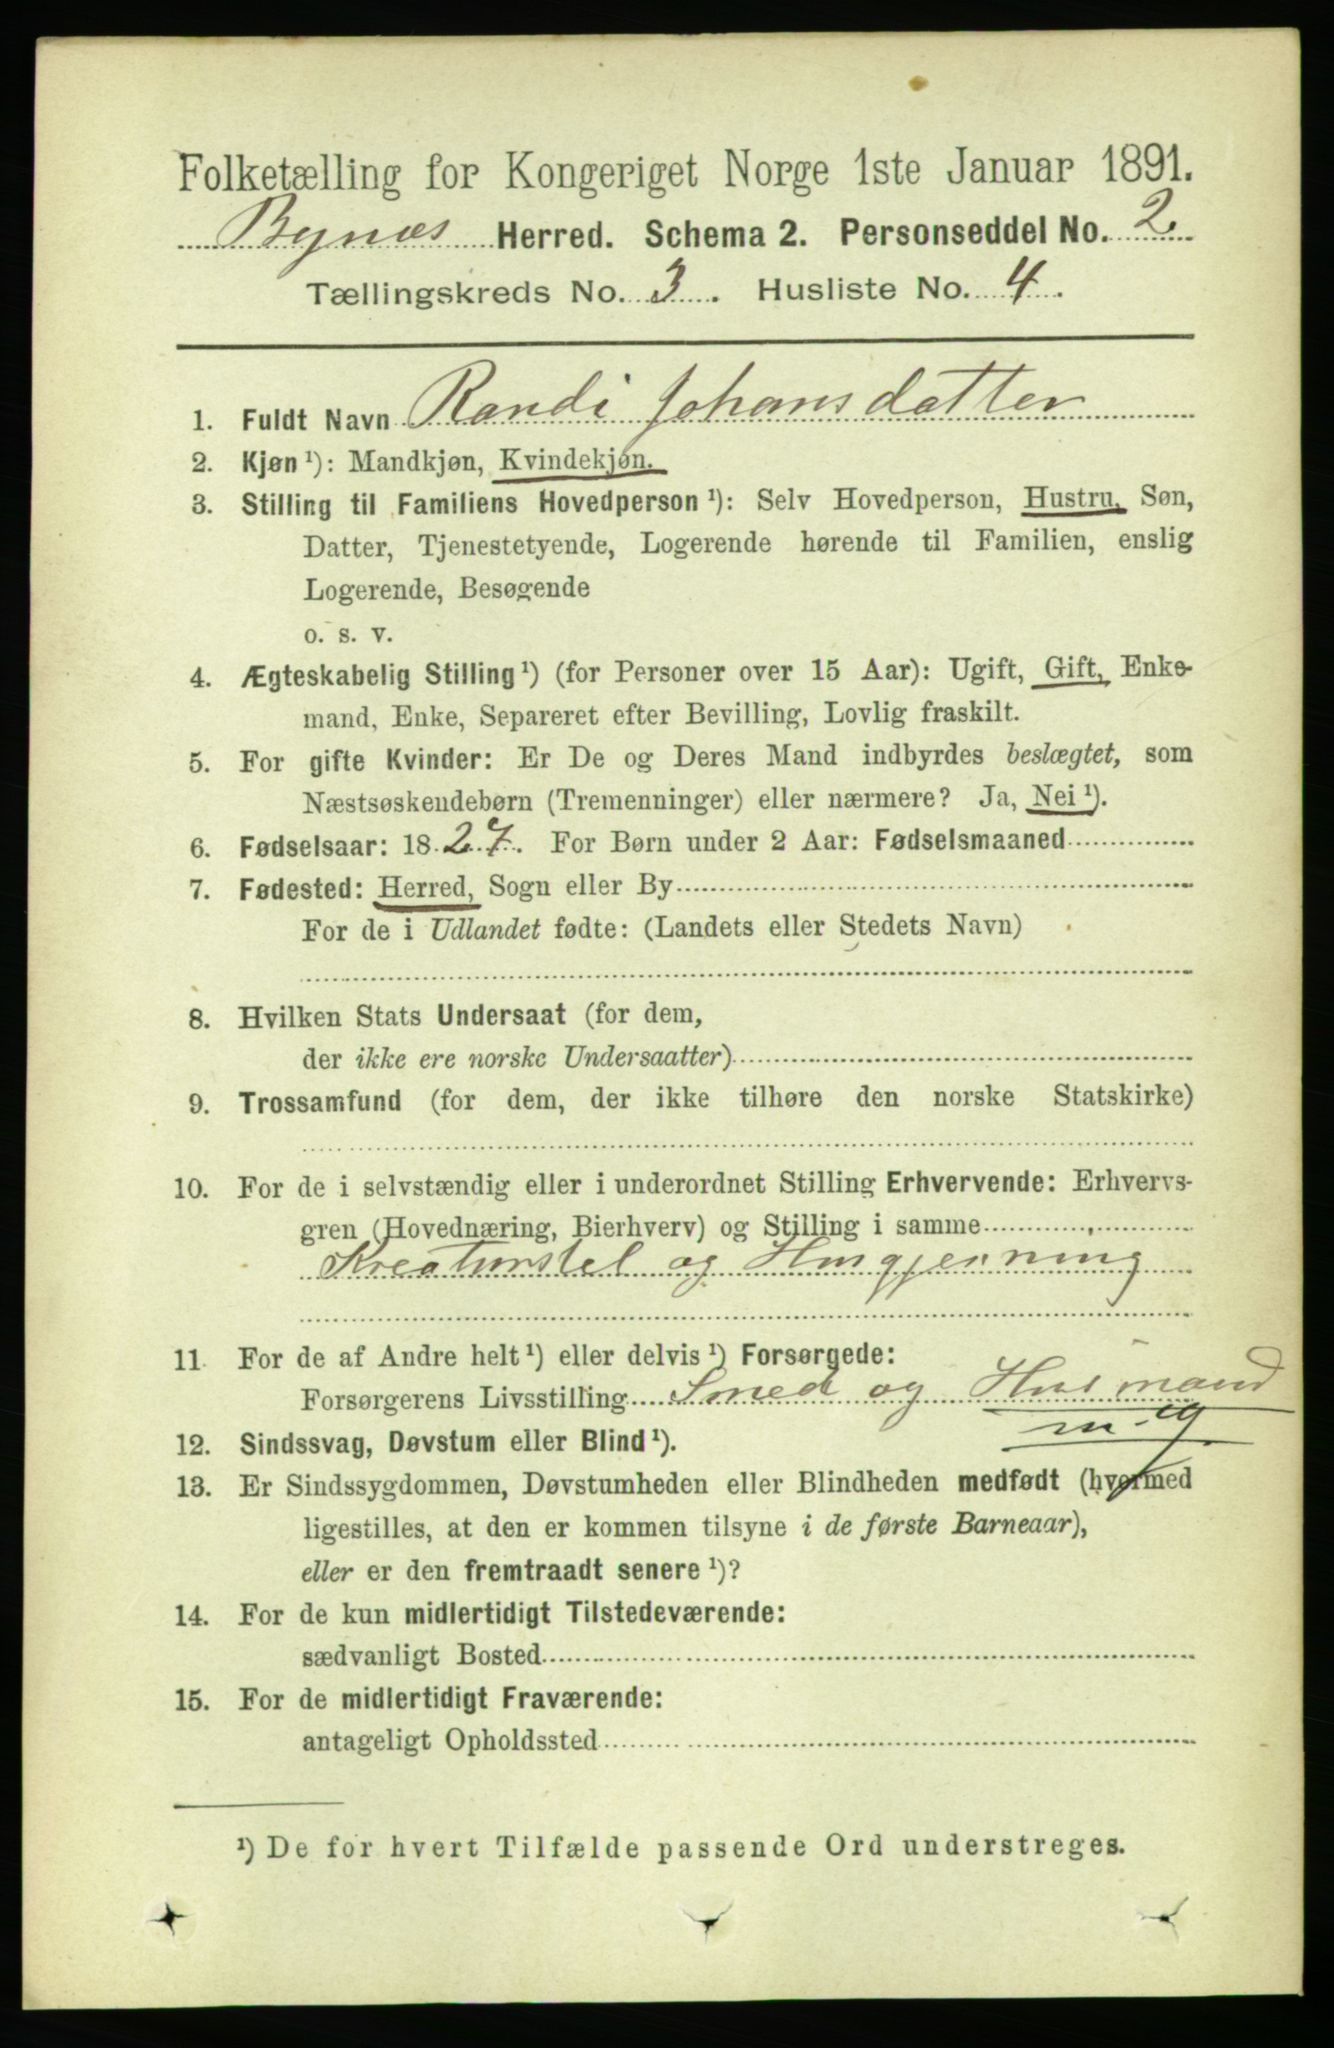 Folketælling for Kongeriget Norge 1ste Januar 1891.
Bynæs Herred. Schema 2. Personseddel No. 2.
Tællingskreds No. 3. Husliste No. 4.
1. Fuldt Navn Randi Johansdatter
2. Kjøn ¹): Mandkjøn, Kvindekjøn.
3. Stilling til Familiens Hovedperson ¹): Selv Hovedperson, Hustru, Søn,
Datter, Tjenestetyende, Logerende hørende til Familien, enslig
Logerende, Besøgende
o. s. v.
4. Ægteskabelig Stilling ¹) (for Personer over 15 Aar): Ugift, Gift, Enke-
mand, Enke, Separeret efter Bevilling, Lovlig fraskilt.
5. For gifte Kvinder: Er De og Deres Mand indbyrdes beslægtet, som
Næstsøskendebørn (Tremenninger) eller nærmere? Ja, Nei ¹).
6. Fødselsaar: 1827. For Børn under 2 Aar: Fødselsmaaned
7. Fødested: Herred, Sogn eller By
For de i Udlandet fødte: (Landets eller Stedets Navn)
8. Hvilken Stats Undersaat (for dem,
der ikke ere norske Undersaatter)
9. Trossamfund (for dem, der ikke tilhøre den norske Statskirke)
10. For de i selvstændig eller i underordnet Stilling Erhvervende: Erhvervs-
gren (Hovednæring, Bierhverv) og Stilling i samme
Kreaturstel og Husgjerning
11. For de af Andre helt ¹) eller delvis ¹) Forsørgede:
Forsørgerens Livsstilling Smed og Husmand
12. Sindssvag, Døvstum eller Blind ¹).
13. Er Sindssygdommen, Døvstumheden eller Blindheden medfødt (hvormed
ligestilles, at den er kommen tilsyne i de første Barneaar),
eller er den fremtraadt senere ¹)?
14. For de kun midlertidigt Tilstedeværende:
sædvanligt Bosted
15. For de midlertidigt Fraværende:
antageligt Opholdssted
¹) De for hvert Tilfælde passende Ord understreges.